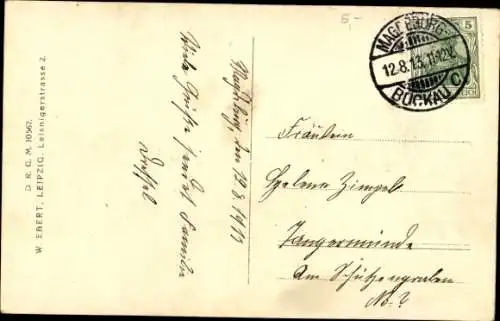 5,-
MAGDEBURG-
12.8.13. 11-12V.
BUCKAU C
5
D. R. G. M. 10567.
W. EBERT, LEIPZIG, Leisnigerstrasse 2.
Magdeburg, den 12.8.1913
Viele Grüße sendet Familie
Fräulein
Helene Zimpel
Tangermünde
Am Schützengraben
No. ?